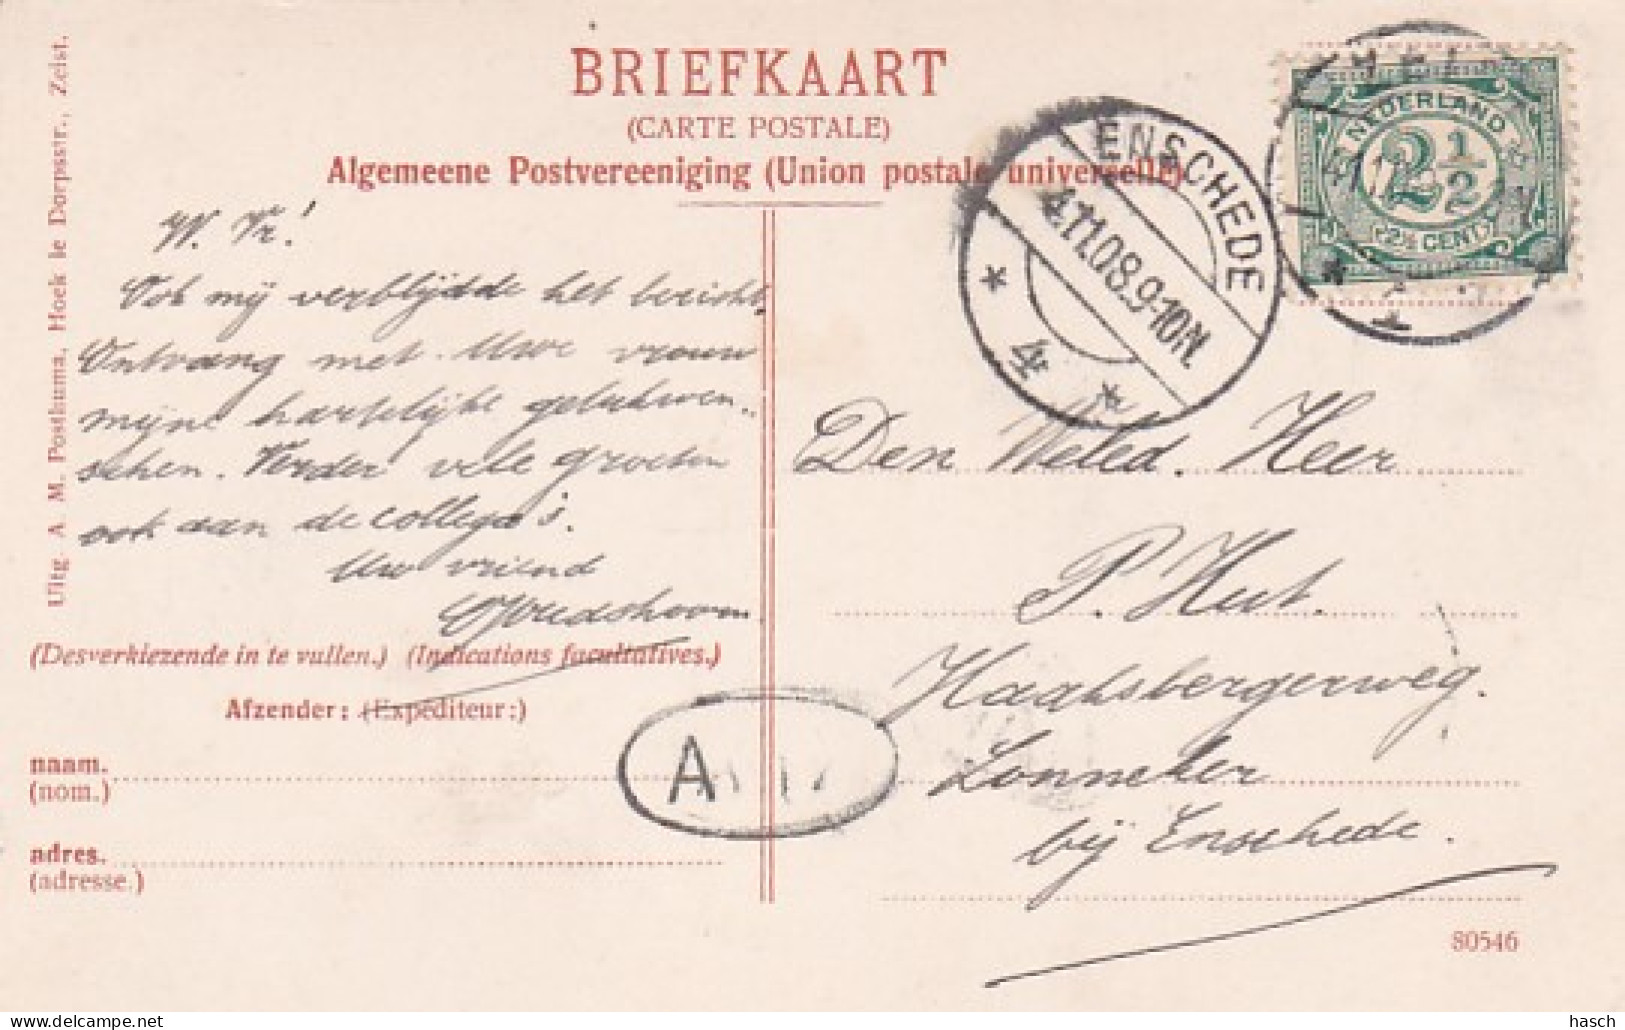 BRIEFKAART
(CARTE POSTALE)
Algemeene Postvereeniging (Union postale universelle)
Uitg. A. M. Posthuma, Hoek le Dorpsstr., Zeist.
W. Fr.!
Ook mij verblijdde het bericht.
Ontvang met Uwe vrouw
mijne hartelijke gelukwen-
schen. Verder vele groeten
ook aan de collega's.
Uw vriend
(Desverkiezende in te vullen.) (Indications facultatives.)
Afzender: (Expéditeur:)
naam.
(nom.)
adres.
(adresse.)
A
ENSCHEDE
4.11.08.9-10N.
4
NEDERLAND
2 1/2
2½ CENT
Den Weled. Heer
P. Hut.
Haaksbergerweg.
Lonneker
bij Enschede.
80546
hasch